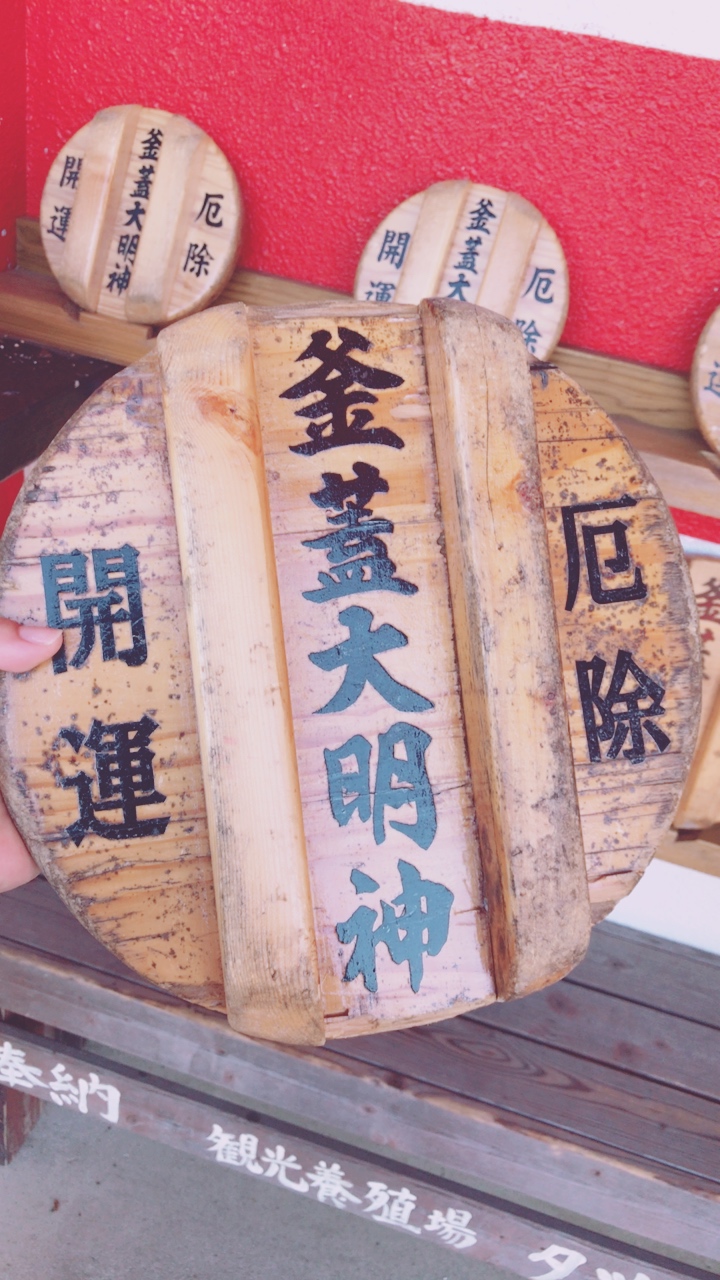 厄除
釜蓋大明神
開運
厄除
釜蓋大明神
開運
厄除
釜蓋大
開運
奉納
観光養殖場